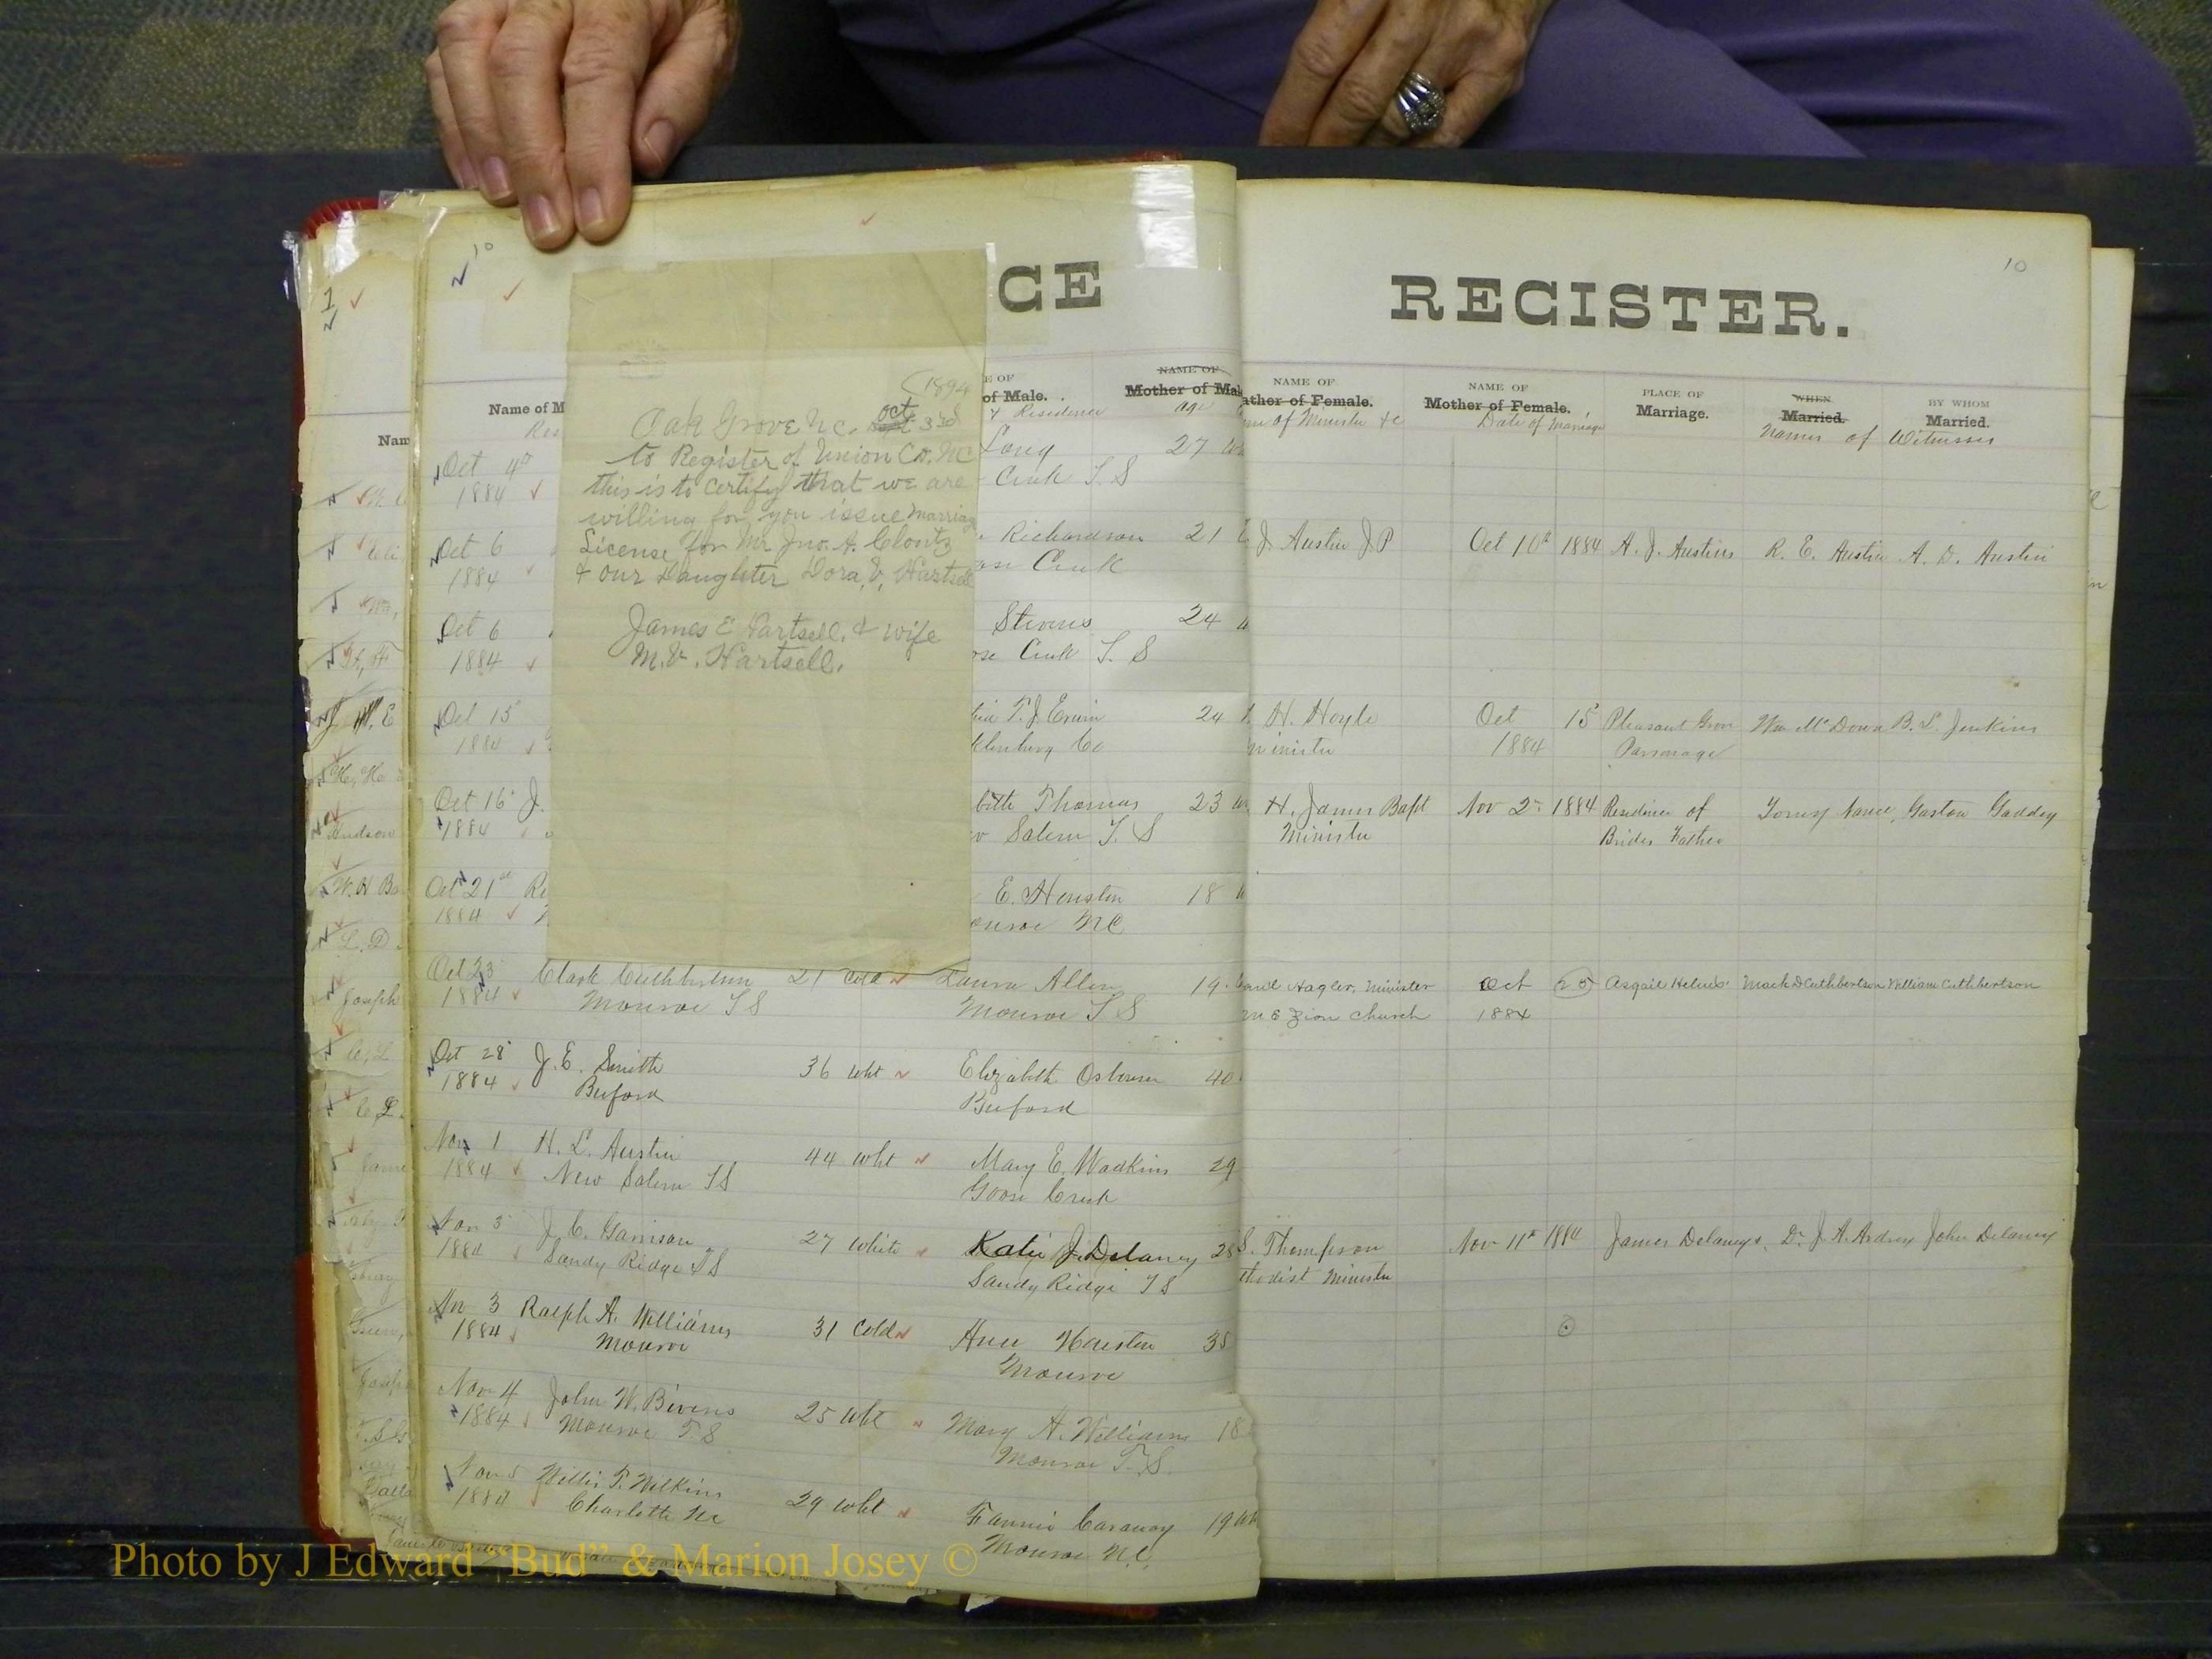 10
1
CE REGISTER.
10
Name of M
E OF
of Male.
NAME OF
Mother of Mal
NAME OF
ather of Female.
NAME OF
Mother of Female.
PLACE OF
Marriage.
WHEN
Married.
BY WHOM
Married.
Res
& Residence
age
me of Minister &c
Date of Marriage
Names of Witnesses
Nam
1894
Oak Grove N.C. Oct 3rd
to Register of Union Co. NC
this is to certify that we are
willing for you issue Marriag
License for Mr Jno. A. Clontz
& our Daughter Dora, V, Hartsell
James E Hartsell. & wife
M.V. Hartsell.
Oct 4th Long 27
1884 Creek T. S
Oct 6 Richardson 21 J Austin J P Oct 10th 1884 A. J. Austins R. E. Austin A. D. Austin
1884 Creek
Oct 6 Stevens 24
1884 Creek T. S
Oct 15 T. J. Erwin 24 H. Hoyle Oct 15 Pleasant Grove Wm McDowd B. L. Jenkins
1884 klenburg Co minister 1884 Parsonage
Oct 16 J. beth Thomas 23 H. James Bapt Nov 2nd 1884 Residence of Torrey Nance, Gaston Gaddey
1884 Salem T. S Minister Brides Father
Oct 21st E. Houston 18
1884 onroe NC
Oct 23 Clark Cuthbertson 21 Cold Laura Allen 19 Hagler, Minister Oct 25 Asgail Helms' Mack D Cuthbertson William Cuthbertson
1884 Monroe T S Monroe T S M E Zion Church 1884
Oct 28 J. E. Smith 36 wht Elizabeth Osborn 40
1884 Buford Buford
Nov 1 H. L. Austin 44 wht Mary E. Wadkins 29
1884 New Salem T S Goose Creek
Nov 3 J. C. Garrison 27 white Katie J. Delaney 28 S. Thompson Nov 11th 1884 James Delaneys, Dr J. A. Ardrey John Delaney
1884 Sandy Ridge T S Sandy Ridge T S thodist Minister
Nov 3 Ralph A. Williams 31 Cold Ann Houston 35
1884 Monroe Monroe
Nov 4 John W. Bivens 25 wht Mary A. Williams 18
1884 Monroe T. S Monroe T. S.
Nov 5 Willis T. Wilkins 29 wht Fannie Caraway 19 wh
1884 Charlotte NC Monroe N.C.
Photo by J Edward “Bud” & Marion Josey ©